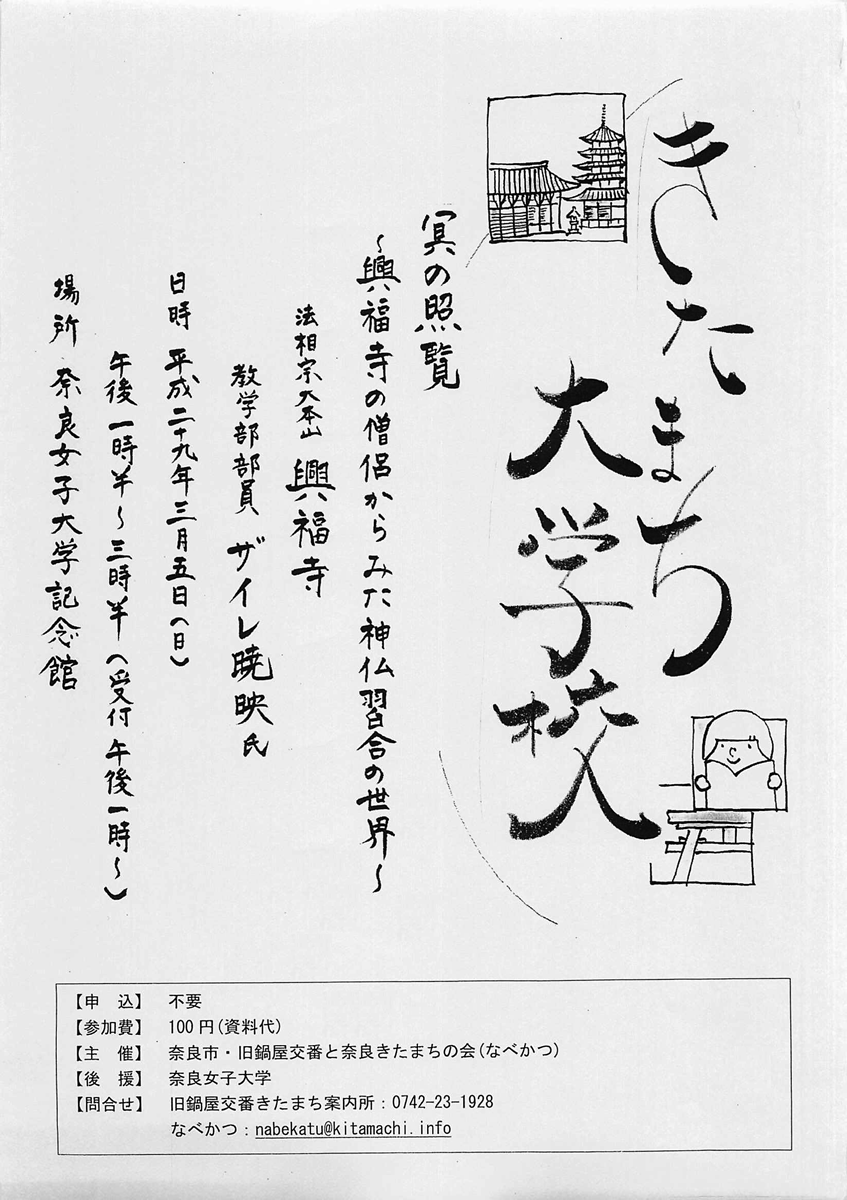 きたまち
大学校
冥の照覧
～興福寺の僧侶からみた神仏習合の世界～
法相宗大本山 興福寺
教学部部員 ザイレ暁映氏
日時 平成二十九年三月五日(日)
午後一時半～三時半(受付 午後一時～)
場所 奈良女子大学記念館
【申　込】　不要
【参加費】　100円(資料代)
【主　催】　奈良市・旧鍋屋交番と奈良きたまちの会(なべかつ)
【後　援】　奈良女子大学
【問合せ】　旧鍋屋交番きたまち案内所：0742-23-1928
なべかつ：nabekatu@kitamachi.info